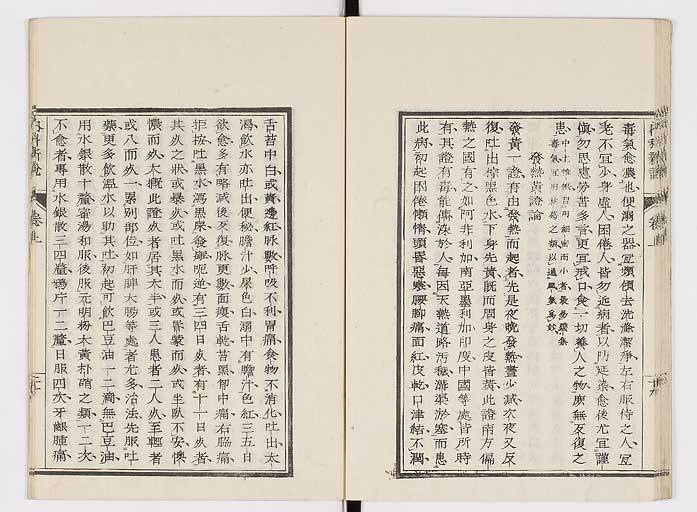 毒氣愈濃也便溺之器宜頻傾去洗滌潔淨左右服侍之人宜
老不宜少身虛人困倦人皆勿近病者以防延染愈後尤宜謹
愼勿思慮勞苦多言更宜戒口食一切養人之物庶無反復之
患
發熱黃證論
發黃一證有由發熱而起者先是夜晩發熱晝少減次夜又反
復吐出棕黑色水下身先黃旣而周身之皮皆黃此證南方偏
熱之國有之如阿非利加南亞墨利加印度中國等處皆所時
有其證有毒能傳染於人每因天熱道路汚穢溝渠淤塞而患
此病初起困倦懶惰頭暈惡寒腰脚痛面紅皮乾口津結不潤
舌苔中白或黃邊紅脉數呼吸不利胃痛食物不消化吐出太
渴飮水亦吐出便秘膽汁少屎色白溺中有膽汁色紅三五日
欲愈多有略減後反復脉更數面瘦舌乾苔黑胃中痛右脇痛
拒按吐黑水瀉黑屎發譫呃逆有三四日死者有十一日死者
其死之狀或暴死或吐黑水而死或昏蒙而死或半臥不安懊
憹而死大槪此證死者居其大半或三人患者二人死至輕者
或八而死一累別部位如肝脾大腸等處者尤多治法先服吐
藥更多飮溫水以助其吐初起可飮巴豆油一二滴無巴豆油
用水銀散十釐蜜湯和服後服元明粉大黃朴硝之類一二次
不愈者專用水銀散三四釐鴉片一二釐日服四次牙齦腫痛